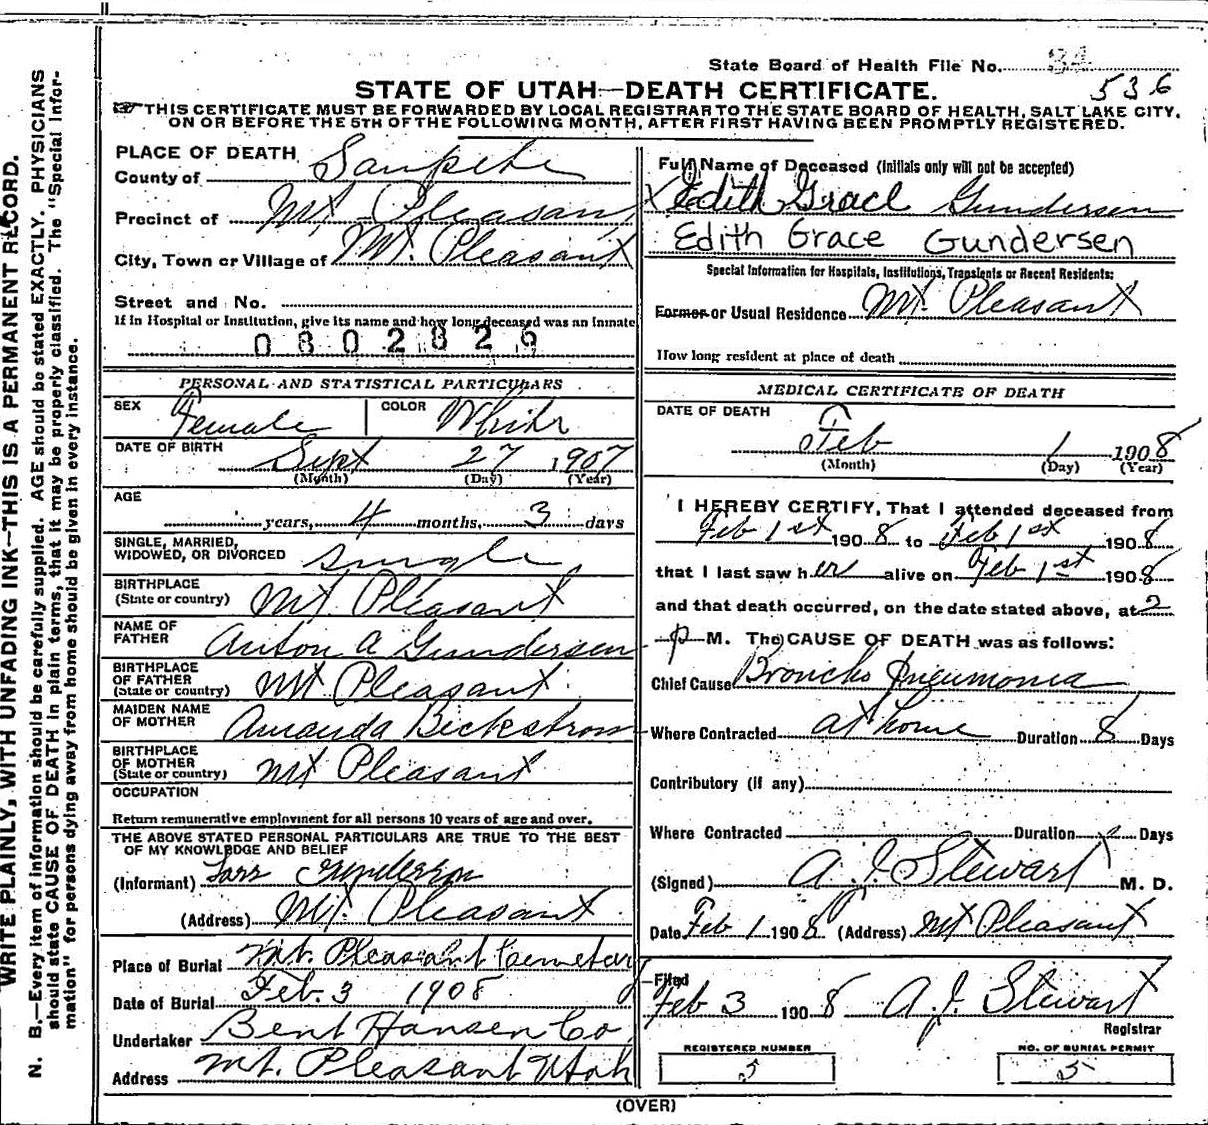 State Board of Health File No. 34
536
STATE OF UTAH—DEATH CERTIFICATE.
THIS CERTIFICATE MUST BE FORWARDED BY LOCAL REGISTRAR TO THE STATE BOARD OF HEALTH, SALT LAKE CITY,
ON OR BEFORE THE 5TH OF THE FOLLOWING MONTH, AFTER FIRST HAVING BEEN PROMPTLY REGISTERED.
WRITE PLAINLY, WITH UNFADING INK—THIS IS A PERMANENT RECORD.
N. B.—Every item of information should be carefully supplied. AGE should be stated EXACTLY. PHYSICIANS
should state CAUSE OF DEATH in plain terms, that it may be properly classified. The "Special Infor-
mation" for persons dying away from home should be given in every instance.
PLACE OF DEATH
County of Sanpete
Precinct of Mt Pleasant
City, Town or Village of Mt. Pleasant
Street and No.
If in Hospital or Institution, give its name and how long deceased was an inmate
0802826
PERSONAL AND STATISTICAL PARTICULARS
SEX Female COLOR White
DATE OF BIRTH Sept 27 1907
(Month) (Day) (Year)
AGE
years, 4 months, 3 days
SINGLE, MARRIED,
WIDOWED, OR DIVORCED Single
BIRTHPLACE
(State or country) Mt Pleasant
NAME OF
FATHER Anton A Gundersen
BIRTHPLACE
OF FATHER
(State or country) Mt Pleasant
MAIDEN NAME
OF MOTHER Amanda Beckstrom
BIRTHPLACE
OF MOTHER
(State or country) Mt Pleasant
OCCUPATION
Return remunerative employment for all persons 10 years of age and over.
THE ABOVE STATED PERSONAL PARTICULARS ARE TRUE TO THE BEST
OF MY KNOWLEDGE AND BELIEF
(Informant) Lars Gunderson
(Address) Mt. Pleasant
Place of Burial Mt. Pleasant Cemetary
Date of Burial Feb. 3 1908
Undertaker Bent Hansen Co
Address Mt. Pleasant Utah
Full Name of Deceased (Initials only will not be accepted)
X Edith Grace Gundersen
Edith Grace Gundersen
Special Information for Hospitals, Institutions, Transients or Recent Residents:
Former or Usual Residence Mt Pleasant
How long resident at place of death
MEDICAL CERTIFICATE OF DEATH
DATE OF DEATH
Feb 1 1908
(Month) (Day) (Year)
I HEREBY CERTIFY, That I attended deceased from
Feb 1st 1908 to Feb 1st 1908
that I last saw her alive on Feb 1st 1908
and that death occurred, on the date stated above, at 2
p M. The CAUSE OF DEATH was as follows:
Chief Cause Broncho Pneumonia
Where Contracted at home Duration 8 Days
Contributory (if any)
Where Contracted Duration Days
(Signed) A. J. Stewart M. D.
Date Feb 1 1908 (Address) Mt Pleasant
Filed
Feb 3 1908 A. J. Stewart
Registrar
REGISTERED NUMBER NO. OF BURIAL PERMIT
5 5
(OVER)